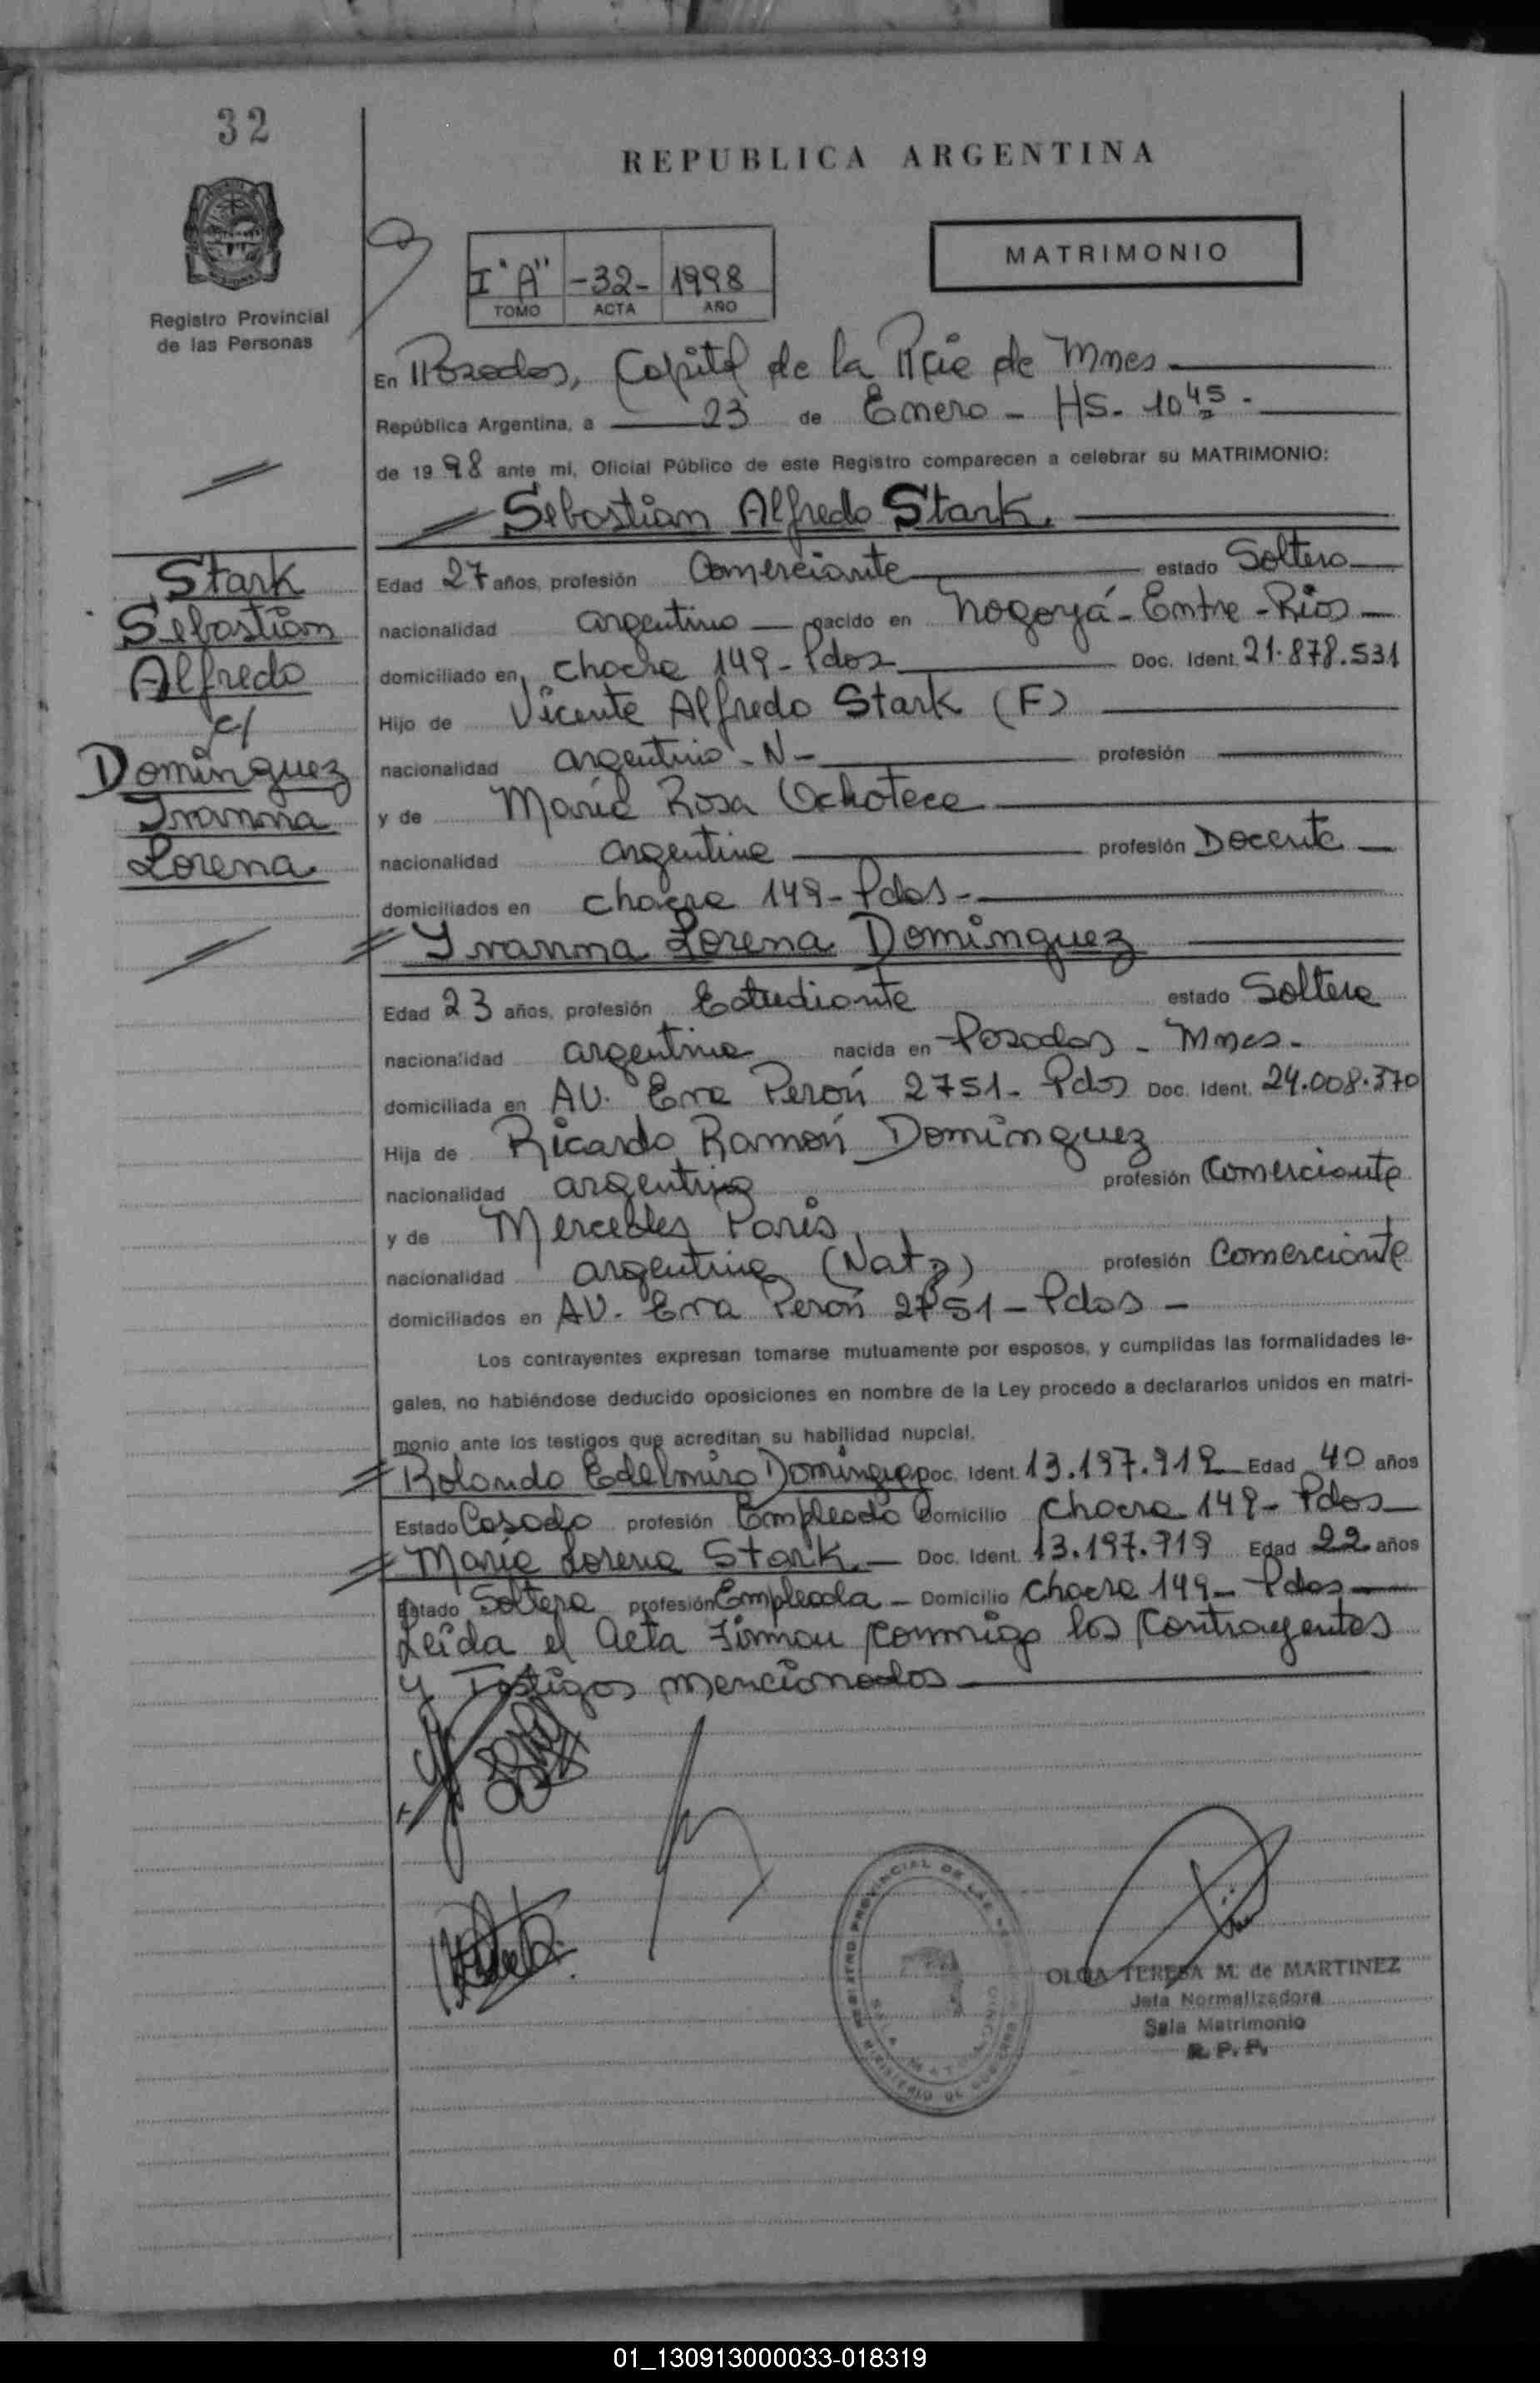 32
REPUBLICA ARGENTINA
MATRIMONIO
I "A" -32- 1998
TOMO ACTA AÑO
Registro Provincial
de las Personas
En Posadas, Capital de la Pcie de Mnes
República Argentina, a 23 de Enero - HS. 10 45 -
de 1998 ante mi, Oficial Público de este Registro comparecen a celebrar su MATRIMONIO:
Sebastian Alfredo Stark.
Stark
Sebastián
Alfredo
c/
Dominguez
Ivanna
Lorena
Edad 27 años, profesión Comerciante estado Soltero
nacionalidad argentino nacido en Nogoyá - Entre - Rios
domiciliado en chacra 149 - Pdas Doc. Ident. 21.878.531
Hijo de Vicente Alfredo Stark (F)
nacionalidad argentino - N - profesión
y de María Rosa Ochotece
nacionalidad argentina profesión Docente
domiciliados en chacra 149 - Pdas -
Ivanna Lorena Dominguez
Edad 23 años, profesión Estudiante estado Soltera
nacionalidad argentina nacida en Posadas - Mnes -
domiciliada en AV. Eva Perón 2751 - Pdas Doc. Ident. 24.008.370
Hija de Ricardo Ramón Dominguez
nacionalidad argentino profesión Comerciante
y de Mercedes
nacionalidad argentina profesión Comerciante
domiciliados en AV. Eva Perón 2751 - Pdas -
Los contrayentes expresan tomarse mutuamente por esposos, y cumplidas las formalidades le-
gales, no habiéndose deducido oposiciones en nombre de la Ley procedo a declararlos unidos en matri-
monio ante los testigos que acreditan su habilidad nupcial.
Rolando Edelmiro Dominguez Doc. Ident. 13.197.919 Edad 40 años
Estado Casado profesión Empleado Domicilio Chacra 149 - Pdas
María Lorena Stark. Doc. Ident. 13.197.919 Edad 22 años
Estado Soltera profesión Empleada - Domicilio Chacra 149 - Pdas
Leída el Acta Firman conmigo los Contrayentes
y Testigos mencionados
OLGA TERESA M. de MARTINEZ
Jefa Normalizadora
Sala Matrimonio
R. P. P.
01_130913000033-018319